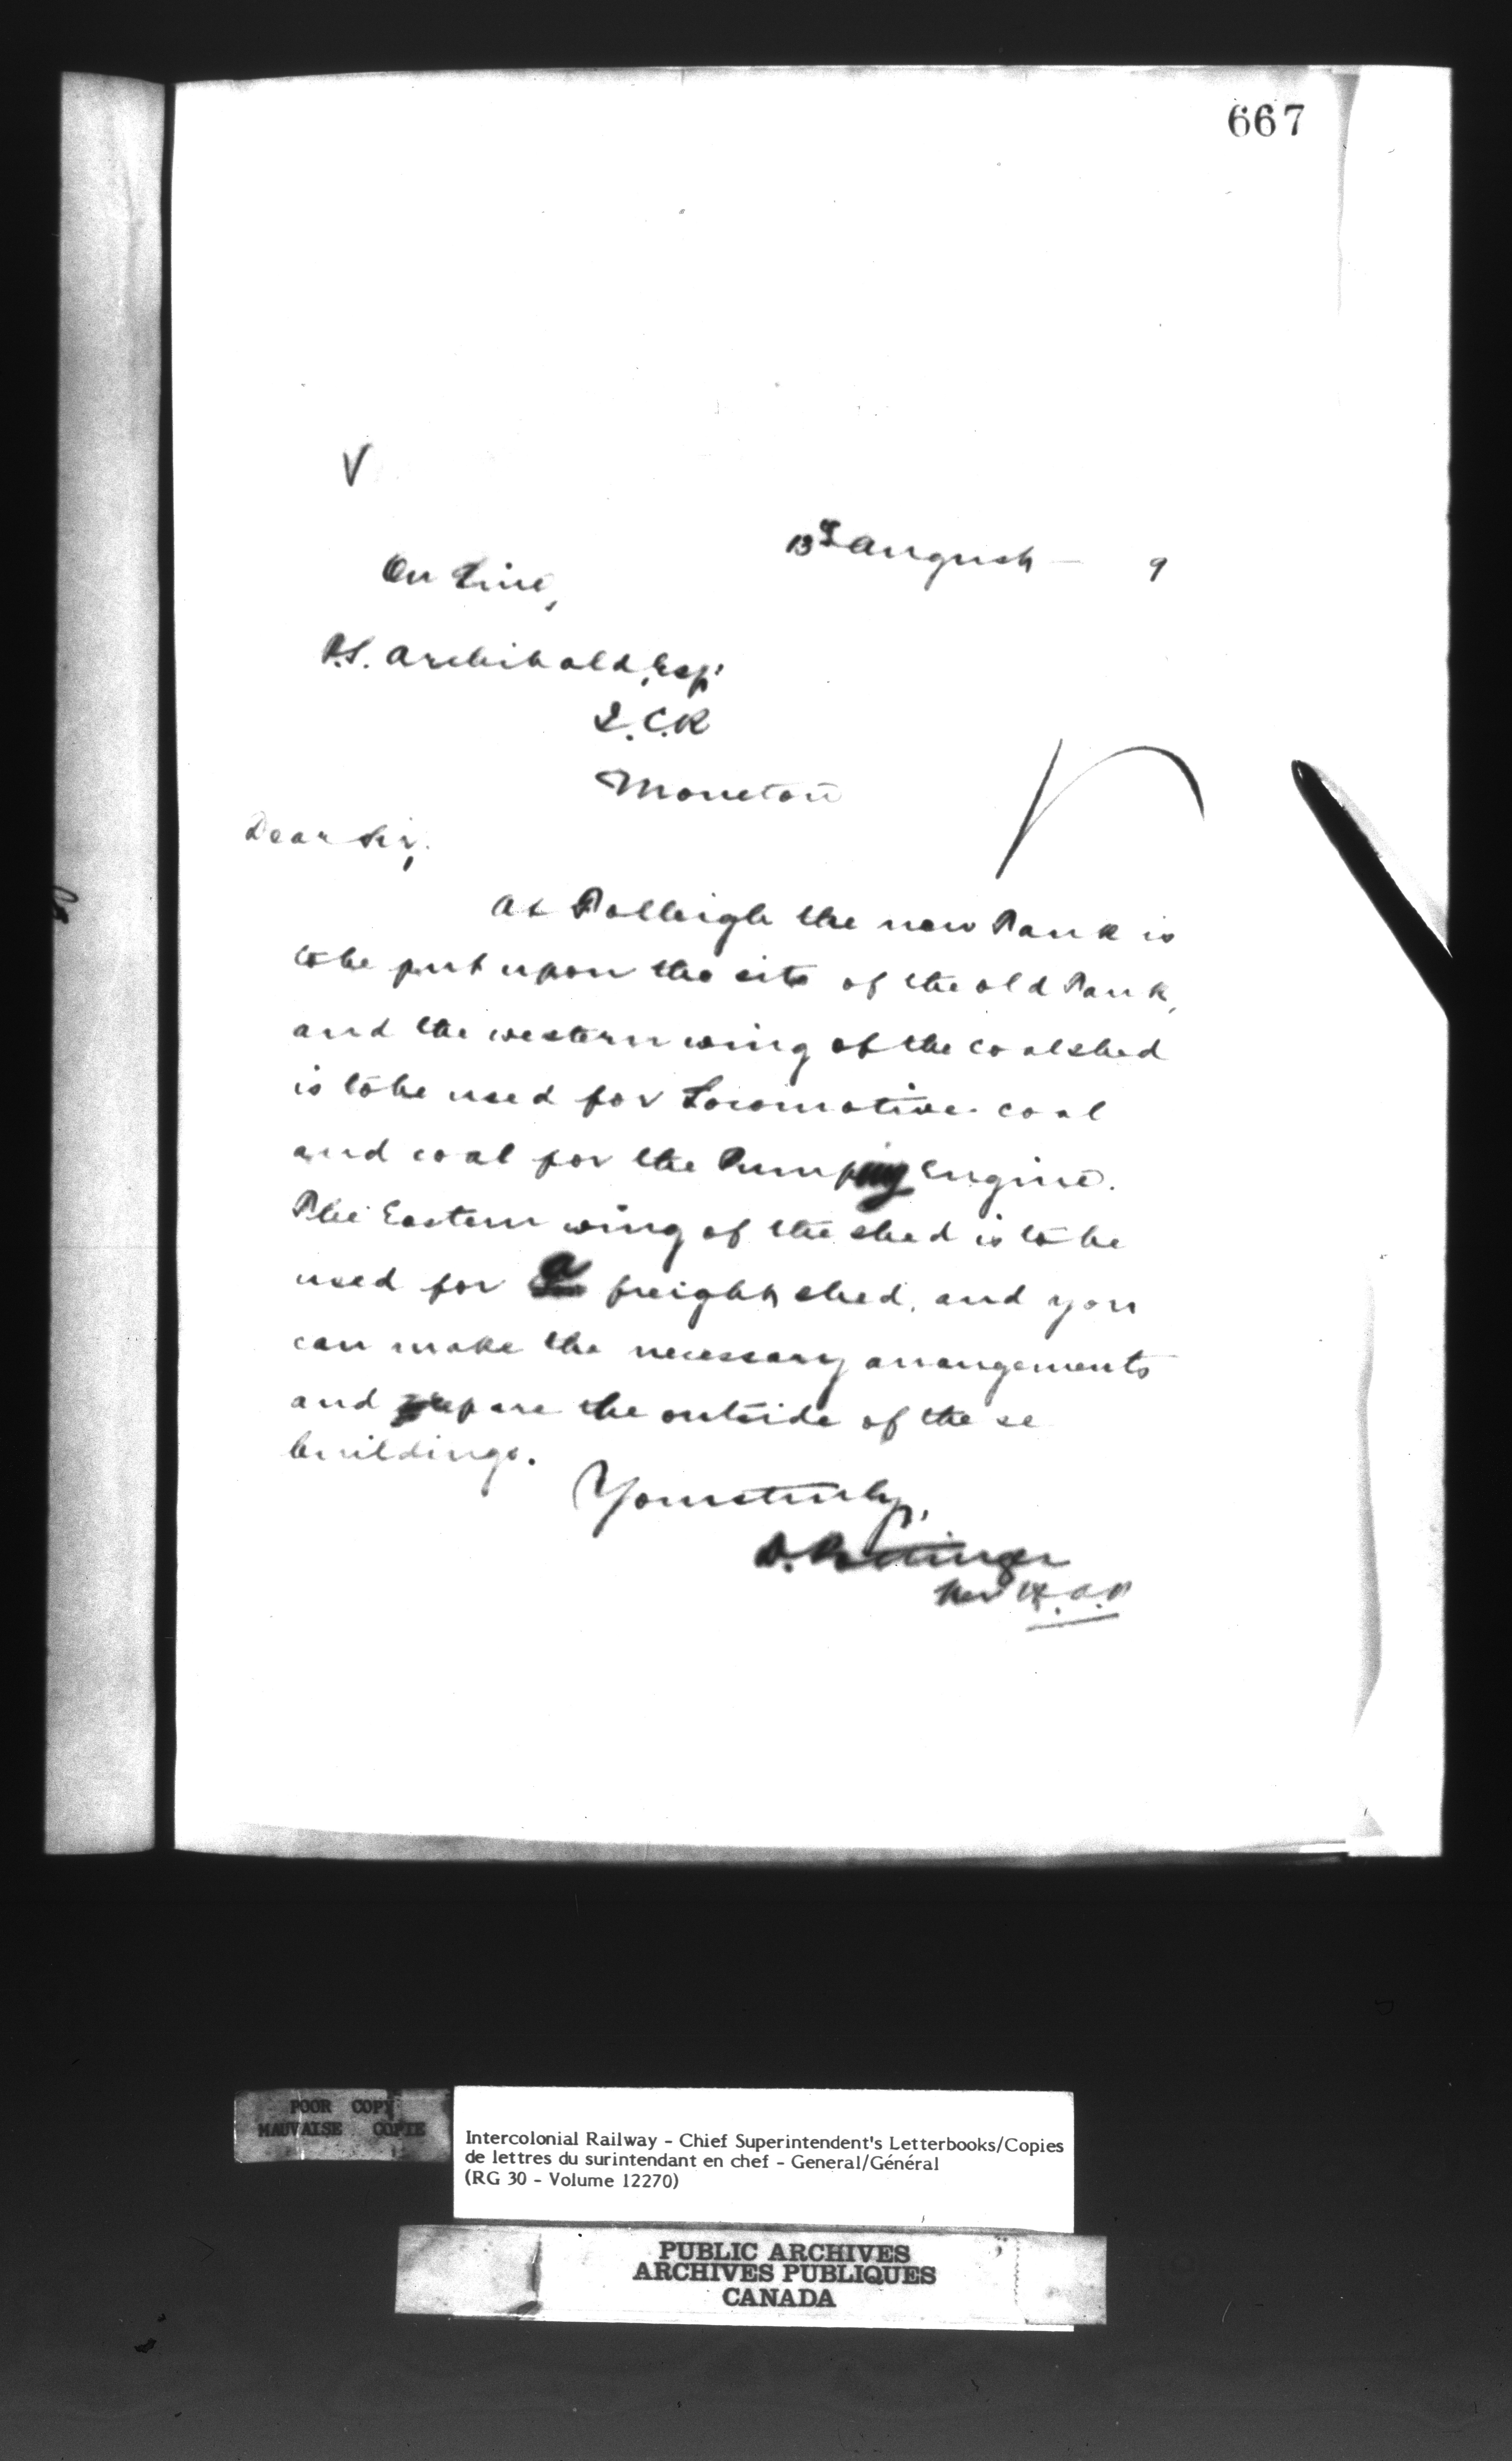 667
V
13th August — 9
On Line,
P.S. Archibald, Esq:
I.C.R
Moncton
Dear Sir,
At the new Tank is
to be put upon the site of the old Tank,
and the western wing of the coal shed
is to be used for Locomotive coal
and coal for the Pumping Engine.
The Eastern wing of the shed is to be
used for a freight shed, and you
can make the necessary arrangements
and prepare the outside of these
buildings.
Yours truly,
D. Pottinger
POOR COPY
MAUVAISE COPIE
Intercolonial Railway - Chief Superintendent's Letterbooks/Copies
de lettres du surintendant en chef - General/Général
(RG 30 - Volume 12270)
PUBLIC ARCHIVES
ARCHIVES PUBLIQUES
CANADA